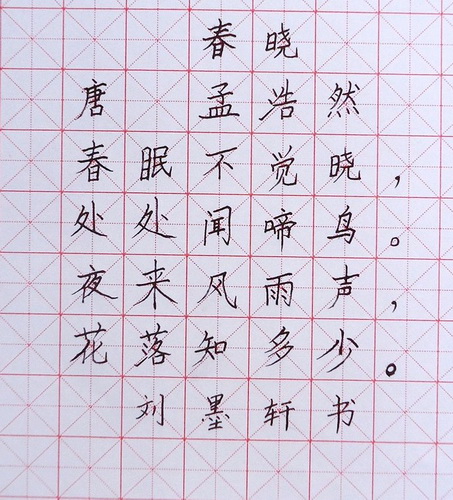 春晓
唐 孟浩然
春眠不觉晓，
处处闻啼鸟。
夜来风雨声，
花落知多少。
刘墨轩书